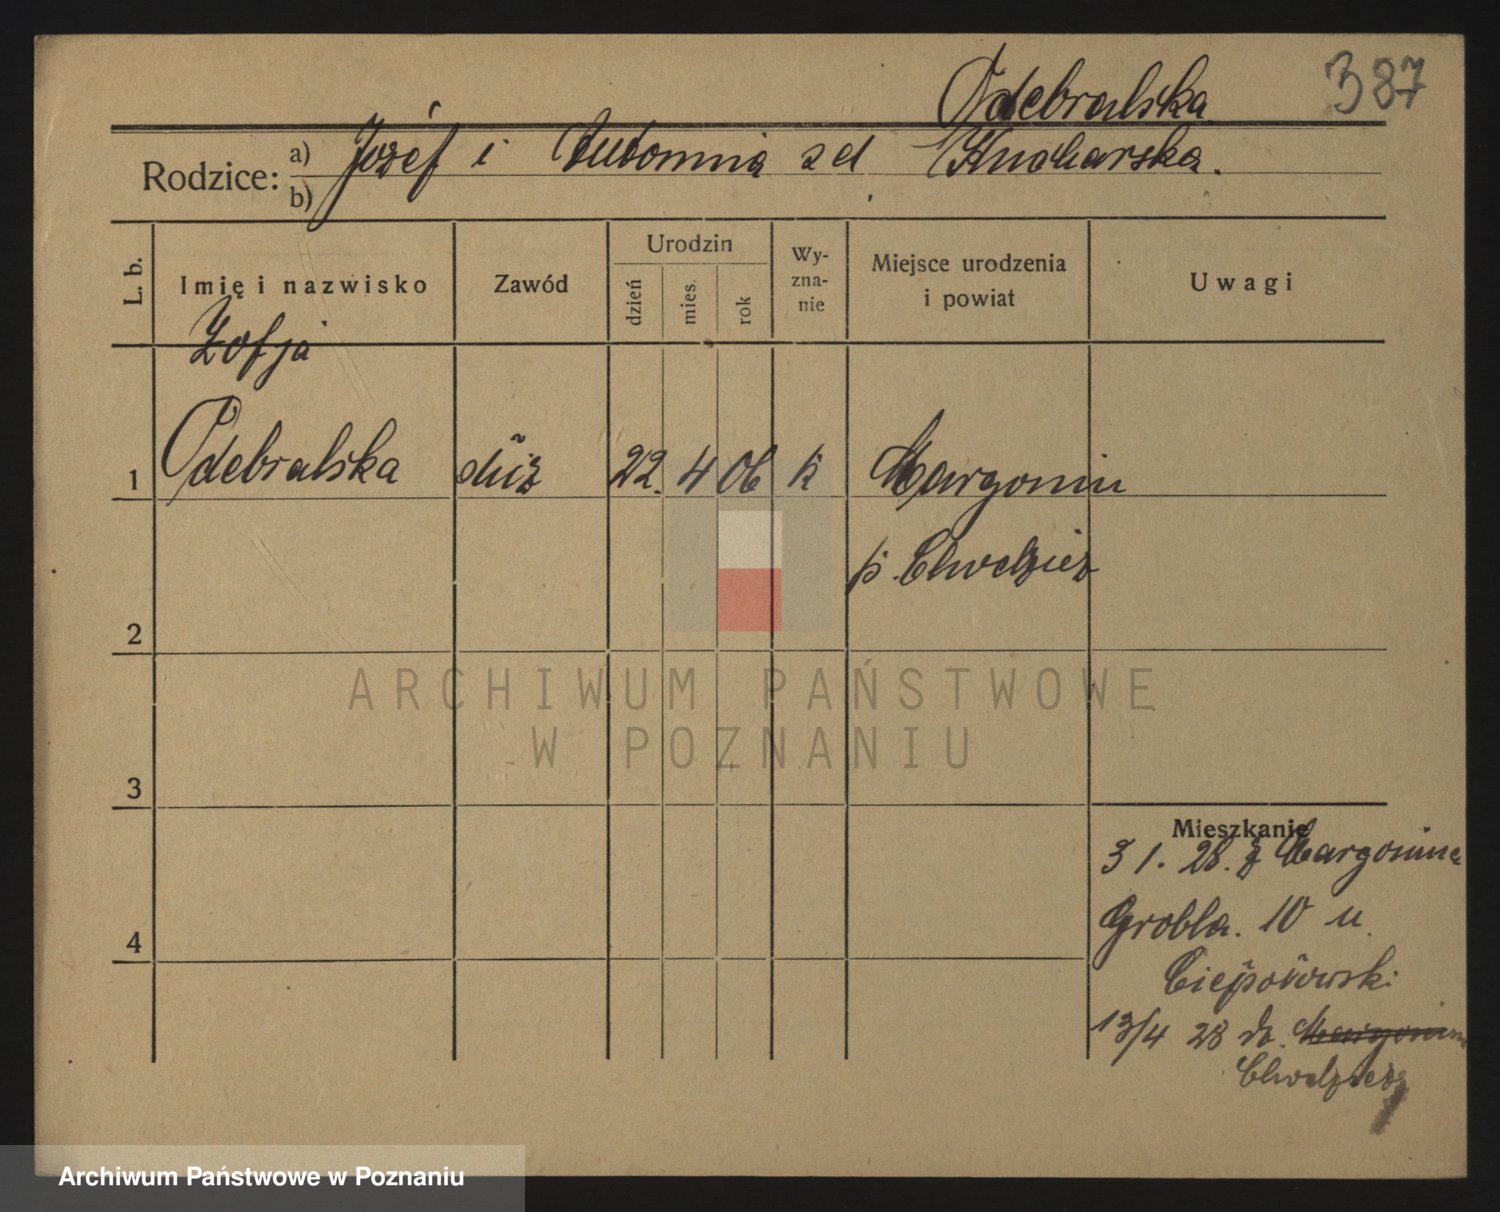 387
Odebralska
Rodzice: a) Józef i Antonina zd Kucharska.
b)
L. b. Imię i nazwisko Zawód Urodzin dzień mies. rok Wyznanie Miejsce urodzenia i powiat Uwagi
Zofja
1 Odebralska służ 22. 4 06 k Margonin
p. Chodzież
2
ARCHIWUM PAŃSTWOWE
W POZNANIU
3
Mieszkanie
3 1. 28. z Margonina
4 Grobla. 10 u.
13/4 28 do Margonina
Chodzież
Archiwum Państwowe w Poznaniu